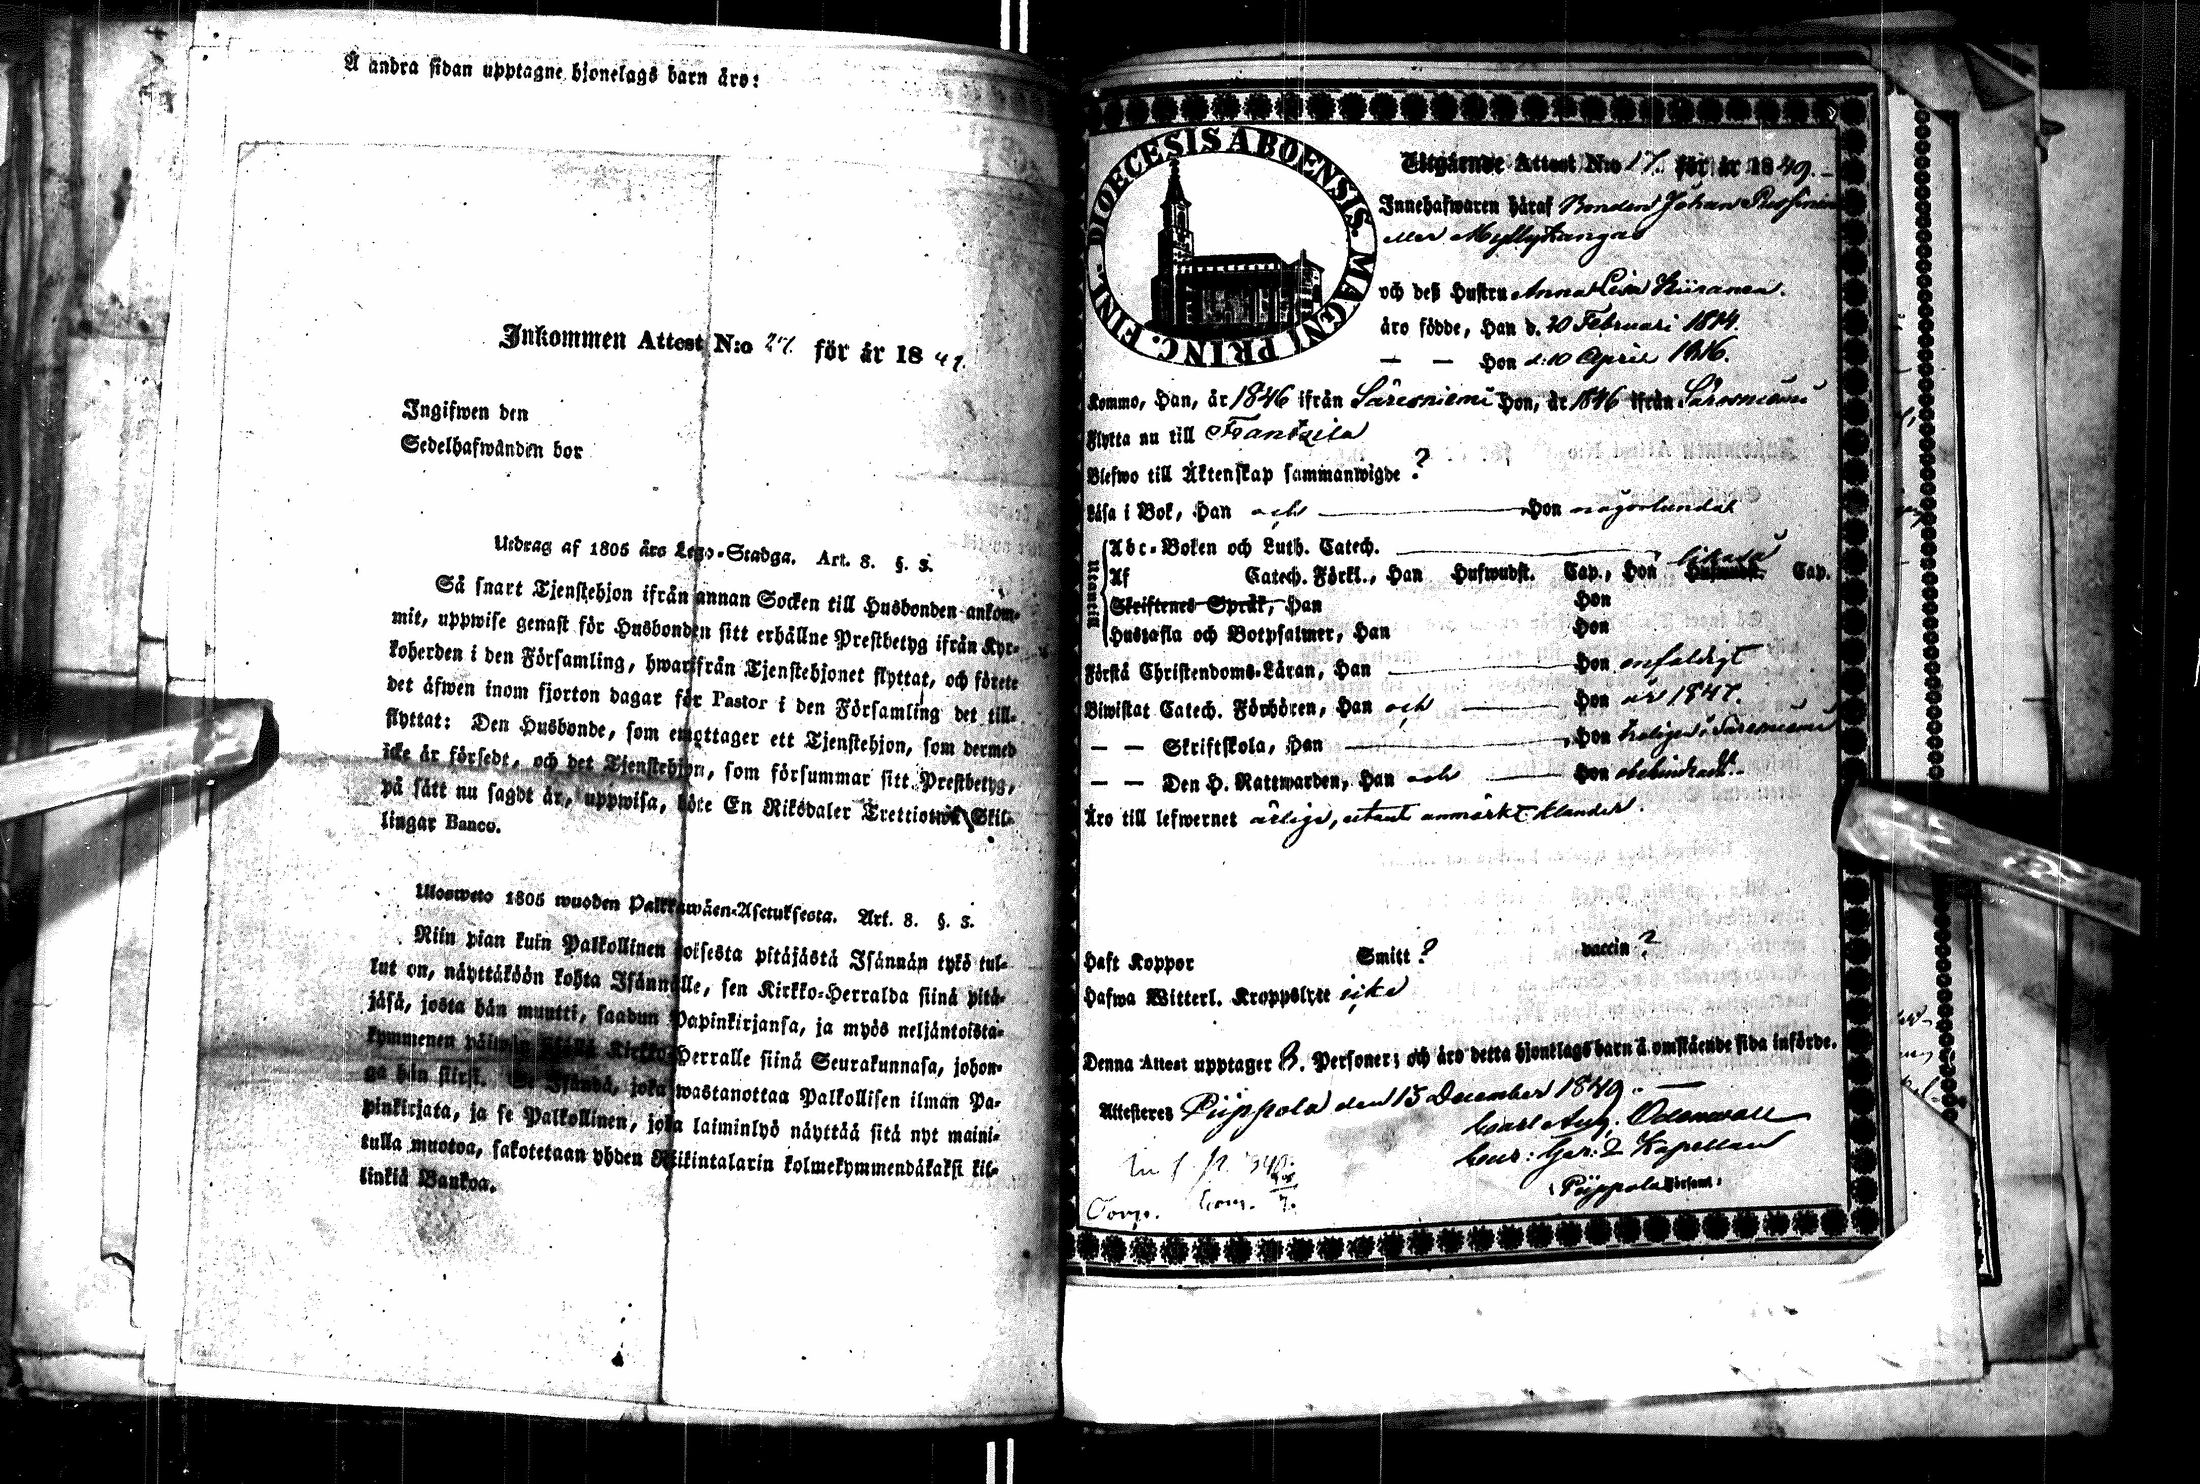 Å andra sidan upptagne hjonelags barn äro:
Inkommen Attest N:o 27. för år 1849.
Ingifwen den
Sedelhafwanden bor
Utdrag af 1805 års Lego-Stadga. Art. 8. §. 3.
Så snart Tjenstehjon ifrån annan Socken till Husbonden ankom-
mit, uppwise genast för Husbonden sitt erhållne Prestbetyg ifrån Kyr-
koherden i den Församling, hwarifrån Tjenstehjonet flyttat, och förete
det äfwen inom fjorton dagar för Pastor i den Församling det till-
flyttat: Den Husbonde, som emottager ett Tjenstehjon, som dermed
icke är försedt, och det Tjenstehjon, som försummar sitt Prestbetyg,
på sätt nu sagdt är, uppwisa, böte En Riksdaler Trettiotwå Skil-
lingar Banco.
Ulosweto 1805 wuoden Palkkawäen-Asetuksesta. Art. 8. §. 3.
Niin pian kuin Palkollinen toisesta pitäjästä Isännän tykö tul-
kut on, näyttäköön kohta Isännälle, sen Kirkko-Herralda siinä pitä-
jäsä, josta hän muutti, saadun Papinkirjansa, ja myös neljäntoista-
kymmenen päiwän Kirkko-Herralle siinä Seurakunnasa, johon-
ga hän siirsi. Se Isändä, joka wastanottaa Palkollisen ilman Pa-
pinkirjata, ja se Palkollinen, joka laiminlyö näyttää sitä nyt maini-
tulla muotoa, sakotetaan yhden Riikintalarin kolmekymmendäkaksi kil-
linkiä Bankoa.
DIOECESIS ABOENSIS. MAGNI PRINC. FINL.
Utgående Attest N:o 17. för år 1849.
Innehafwaren häraf Bonden Johan
eller Myllykangas
och deß Hustru Anna Lisa Kiiranen.
äro födde, Han d. 20 Februari 1814.
— — Hon d. 10 April 1816.
Kommo, Han, år 1846 ifrån Säresniemi Hon, år 1846 ifrån Säresniemi
Flytta nu till Frantzila
Blefwo till Äktenskap sammanwigde ?
Läsa i Bok, Han och — Hon någorlunda
Utanetill
Abc-Boken och Luth. Catech. likaså
Af Catech. Förkl., Han Hufwudst. Cap., Hon Hufwudst. Cap.
Skriftenes Språk, Han Hon
Hustafla och Botpsalmer, Han Hon
Förstå Christendoms-Läran, Han — Hon enfaldigt
Biwistat Catech. Förhören, Han och — Hon år 1847.
— — Skriftskola, Han — Hon troligen i Säresniemi
— — Den H. Nattwarden, Han och — Hon obehindradt.
Äro till lefwernet ärlige, utan anmärkt klander.
Haft Koppor Smitt ? vaccin ?
Hafwa Witterl. Kroppslyte icke
Denna Attest upptager 8. Personer; och äro detta hjonelags barn å omstående sida införde.
Attesteras Piippola den 15 December 1849. —
Carl Aug. Odenwall
Cour: Gar: & Kapellan
i Piippola Församl:
Comp. Com. 7.